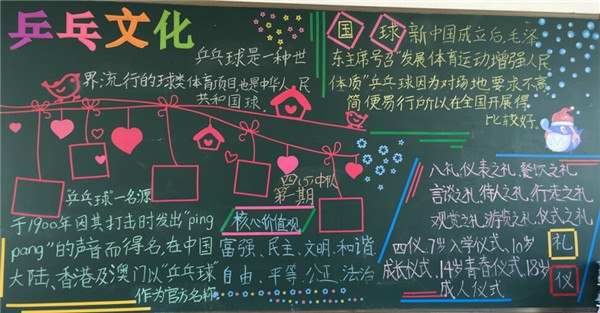 乒乓文化
乒乓球是一种世
界流行的球类体育项目,也是中华人民
共和国球.
国球 新中国成立后,毛泽
东主席号召"发展体育运动增强人民
体质"乒乓球因为对场地要求不高
简便易行所以在全国开展得
比较好.
四(5)中队
第一期
核心价值观
富强、民主、文明、和谐
自由、平等、公正、法治
乒乓球"一名源
于1900年因其打击时发出"ping
pang"的声音而得名,在中国
大陆、香港及澳门以"乒乓球"
作为官方名称.
八礼,仪表之礼、餐饮之礼
言谈之礼、待人之礼、行走之礼
观赏之礼、游览之礼、仪式之礼
四仪,7岁入学仪式、10岁
成长仪式、14岁青春仪式、18岁
成人仪式
礼
仪